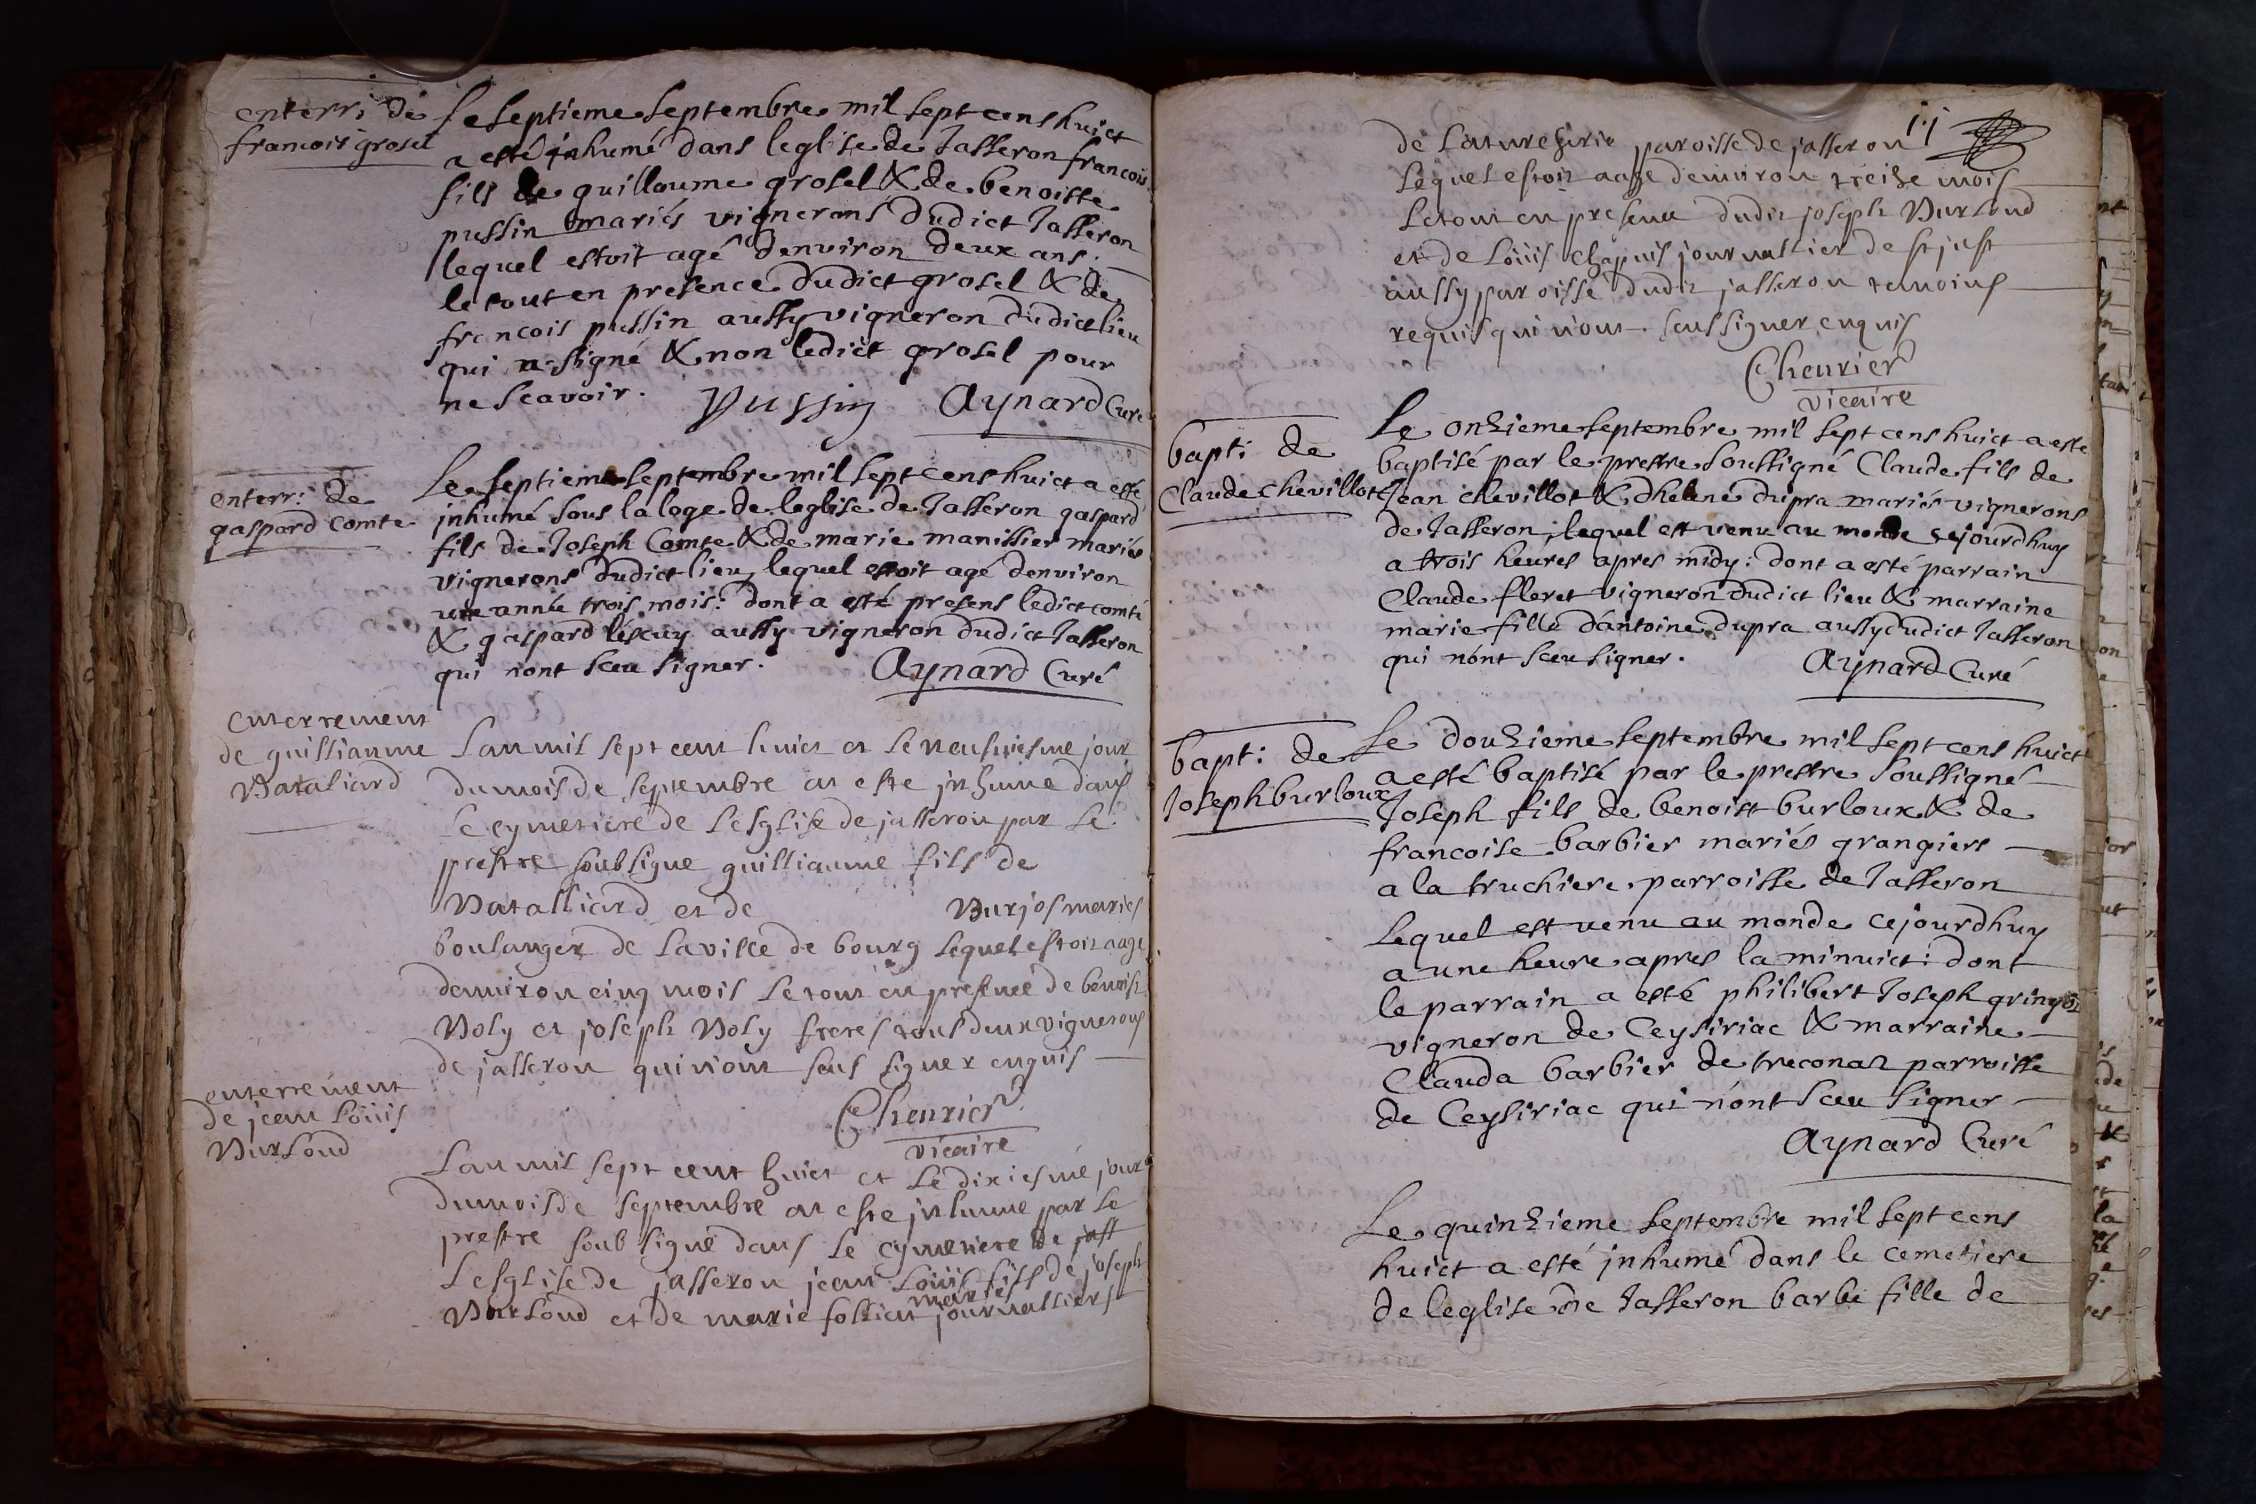 enterr: de
francois grosel
Le septieme septembre mil sept cens huict
a esté inhumé dans leglise de Jasseron francois
fils de guillaume grosel & de benoiste
pussin mariés vignerons dudict Jasseron
lequel estoit agé denviron deux ans.
le tout en presence dudict grosel & de
francois pussin aussy vigneron dudict lieu
qui a signé & non ledict grosel pour
ne scavoir. Pussin Aynard Curé
enterr: de
gaspard comte
Le septieme septembre mil sept cens huict a esté
inhumé sous la loge de leglise de Jasseron gaspard
fils de Joseph Comte & de marie manissier mariés
vignerons dudict lieu, lequel estoit agé denviron
une année trois mois: dont a esté presens ledict comte
& gaspard lescuy aussy vigneron dudict Jasseron
qui nont sceu signer. Aynard Curé
enterrement
de guillianme
Vataliard
Lan mil sept cent huict et le neufuiesme jour
du mois de septembre at este jnhume dans
le cymetiere de lesglise de jasseron par le
prestre soubsigne guillianme fils de
Vatalliard et de Vurjos maries
boulanger de la ville de bourg lequel estoit aage
denuiron cinq mois le tout en presence de benoist
Voly et joseph Voly freres tous deux vignerons
de jasseron qui n'ont seus signer enquis
Cheurier
vicaire
enterrement
de jean Loüis
Vurloud
Lan mil sept cent huict et le dixiesme jour
du mois de septembre at este jnhume par le
prestre soub signe dans le cymetiere de
Lesglise de jasseron jean Loüis fils de joseph
maries
Vurloud et de marie folliat journalliers
11
de paroisse de jasseron
lequel estoit aage denuiron treize mois
le tout en presence dudit joseph Vurloud
et de Loüis chapuis journallier de st just
aussy paroisse dudit jasseron temoins
requis qui n'ont seus signer enquis
Cheurier
vicaire
bapt: de
Claude chevillot
Le onzieme septembre mil sept cens huict a esté
baptisé par le prestre soussigné Claude fils de
Jean chevillot & dhelene dupra mariés vignerons
de Jasseron, lequel est venu au monde cejourdhuy
a trois heures apres midy: dont a esté parrain
Claude fleret vigneron dudict lieu & marraine
marie fille dántoine dupra aussy dudict Jasseron
qui nónt sceu signer. Aynard Curé
bapt: de
Joseph burloux
Le douzieme septembre mil sept cens huict
a esté baptisé par le prestre soussigné
Joseph fils de benoist burloux & de
francoise barbier mariés grangiers
a la truchiere parroisse de Jasseron
lequel est venu au monde cejourdhuy
a une heure apres la minuict: dont
le parrain a esté philibert Joseph
vigneron de Ceysiriac & marraine
Clauda barbier de treconaz parroisse
de Ceysiriac qui nónt sceu signer
Aynard Curé
Le quinzieme septembre mil sept cens
huict a esté jnhumé dans le cemetiere
de leglise de Jasseron barbe fille de